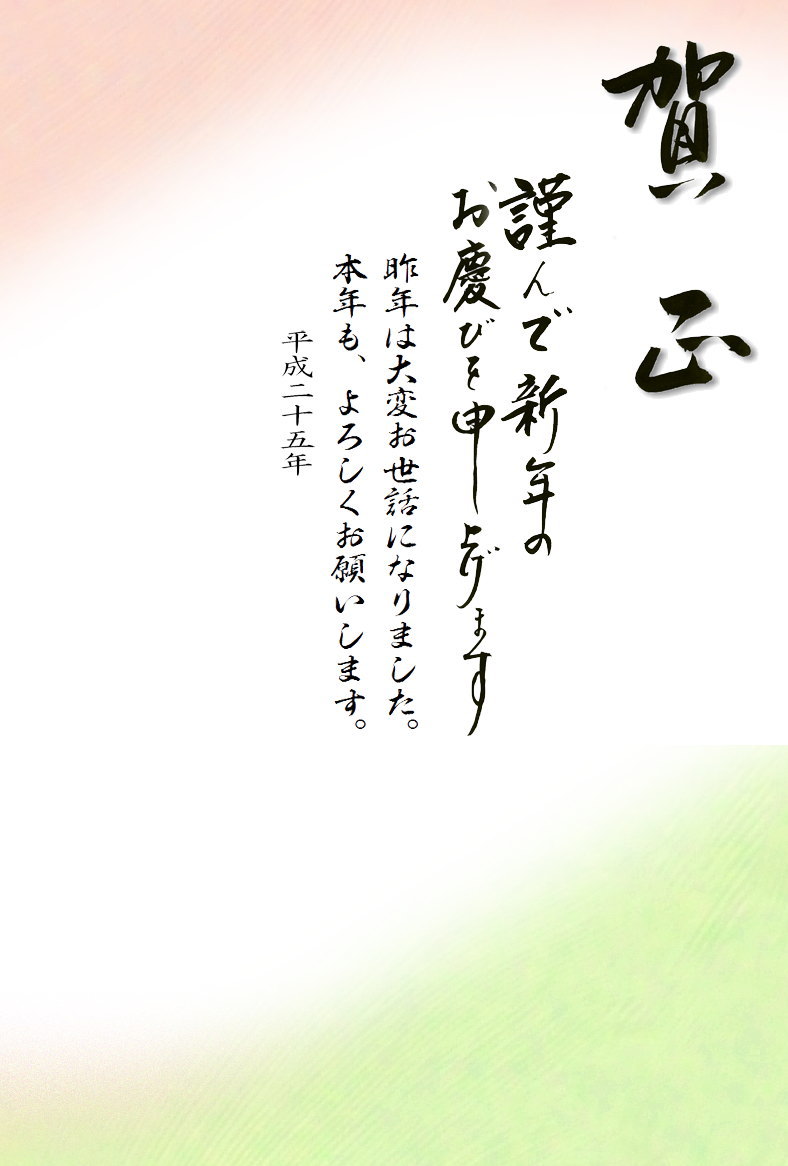 賀正
謹んで新年の
お慶びを申し上げます
昨年は大変お世話になりました。
本年も、よろしくお願いします。
平成二十五年